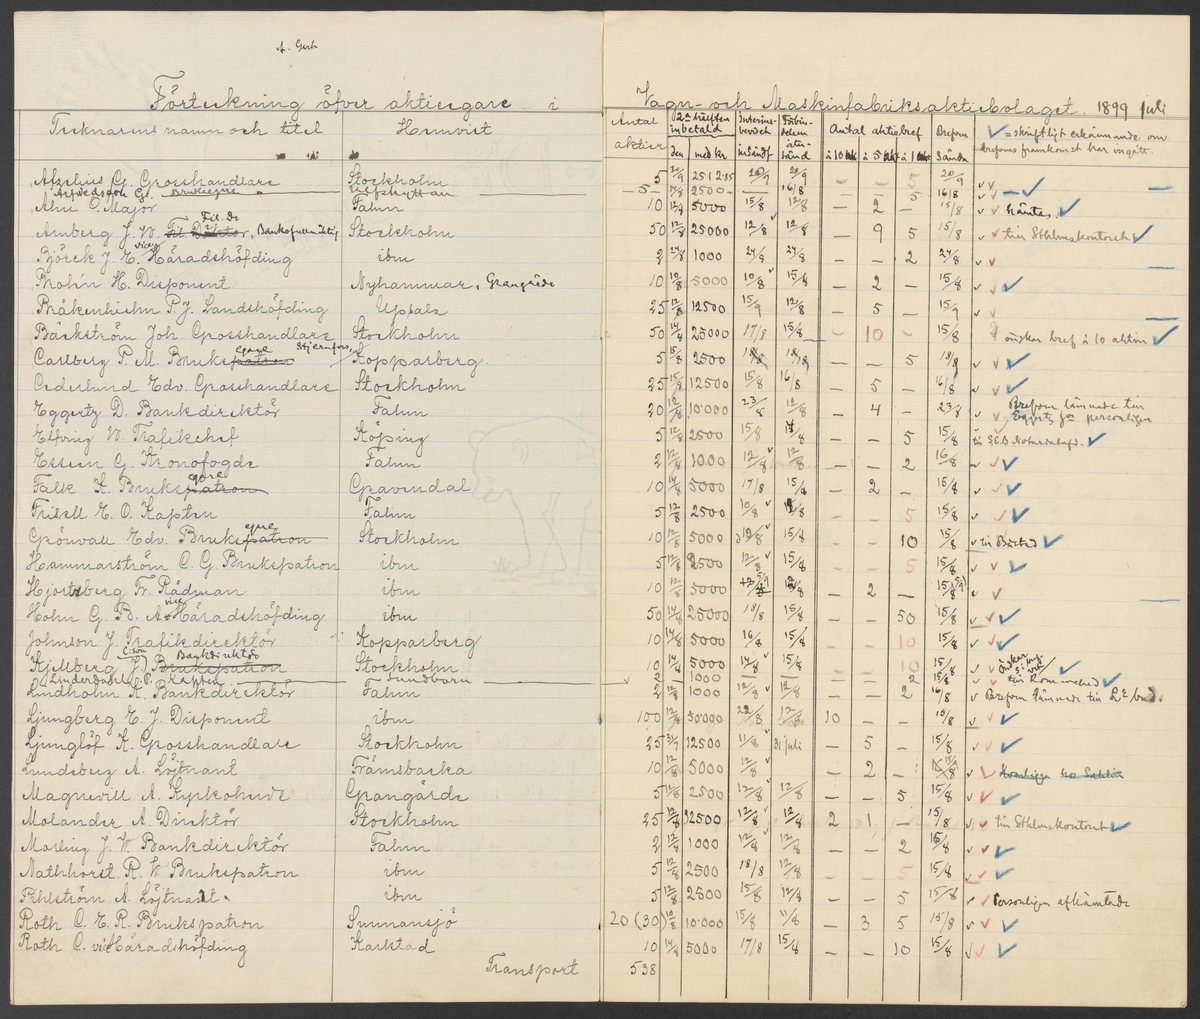 A. Gert
Förteckning öfver aktieegare i Vagn- och Maskinfabriksaktiebolaget. 1899 juli
Tecknarens namn och titel Hemvist Antal aktier 2a hälften inbetald den med kr Interimsbeviset insändt Förbindelsen återsänd Antal aktiebref à 10 à 5 à 1 Brefven sända ✓ = skriftligt erkännande om brefvens framkomst har ingått.
Afzelius G. Grosshandlare Stockholm 5 2512.85 20/9 – – 5 20/9
Arfvedsson G. Bruksegare – 5 – 2500 – 16/8 5 16/8 – ✓
Alm O. Major Falun 10 12/8 5000 15/8 12/8 – 2 – 15/8 hämtas ✓
Arnberg J. W. Fil. Doktor, Fil. Dr Stockholm 50 12/8 25000 12/8 12/8 – 9 5 15/8 till Sthlmskontoret ✓
Björck J. E. vice Häradshöfding ibm 2 24/8 1000 24/8 24/8 – – 2 24/8
Brolin H. Disponent Nyhammar, Grangärde 10 10/8 5000 10/8 15/8 – 2 – ✓
Bråkenhielm P. J. Landshöfding Upsala 25 12/8 12500 15/9 12/8 – 5 – 15/9
Bäckström Joh. Grosshandlare Stockholm 50 14/8 25000 17/8 15/8 – 10 – 15/8 önskar bref à 10 aktier ✓
Carlberg P. M. Brukspatron egare Stjernfors, Kopparberg 5 15/8 2500 18/8 18/8 – – 5 18/8 ✓
Cederlund Edv. Grosshandlare Stockholm 25 15/8 12500 15/8 16/8 – 5 – 16/8 ✓
Eggertz D. Bankdirektör Falun 20 12/8 10000 23/8 12/8 – 4 – 23/8 Brefven lämnade till Eggertz personligen
Elfving W. Trafikchef Köping 5 12/8 2500 15/8 – – 5 15/8 ✓
Essen G. Kronofogde Falun 2 12/8 1000 12/8 12/8 – – 2 16/8 ✓
Falk K. Brukspatron egare Gravendal 10 14/8 5000 17/8 15/8 – 2 – 15/8 ✓
Frisell E. O. Kapten Falun 5 12/8 2500 10/8 – – 5 15/8 ✓
Grönvall Edv. Brukspatron egare Stockholm 10 12/8 5000 15/8 – – 10 15/8 ✓
Hammarström C. G. Brukspatron ibm 5 12/8 2500 12/8 15/8 – – 5 15/8 ✓
Hjertberg Fr. Rådman ibm 10 12/8 5000 12/8 – 2 – 15/8
Holm G. B. A. vice Häradshöfding ibm 50 14/8 25000 18/8 15/8 – – 50 15/8 ✓
Johnson J. Trafikdirektör Kopparberg 10 14/8 5000 16/8 15/8 – – 10 15/8 ✓
Kjellberg J. C:son Brukspatron Bankdirektör Stockholm 10 14/8 5000 14/8 15/8 – – 10 15/8 ✓
Linderdahl C. P. Kapten Sundborn 2 1000 2 15/8 ✓
Lindholm K. Bankdirektör Falun 2 12/8 1000 12/8 12/8 – – 2 16/8 Brefven lämnade till
Ljungberg E. J. Disponent ibm 100 12/8 50000 22/8 12/8 10 – – 15/8 ✓
Ljunglöf K. Grosshandlare Stockholm 25 31/7 12500 11/8 31 juli – 5 – 15/8 ✓
Lundeberg A. Löjtnant Främsbacka 10 12/8 5000 12/8 – 2 –
Magnevill A. Kyrkoherde Grangärde 5 12/8 2500 12/8 12/8 – – 5 15/8 ✓
Molander A. Direktör Stockholm 25 12/8 12500 12/8 12/8 2 1 – 15/8 till Sthlmskontoret ✓
Morling J. W. Bankdirektör Falun 2 12/8 1000 12/8 12/8 – – 2 15/8 ✓
Nathhorst R. W. Brukspatron ibm 5 12/8 2500 18/8 12/8 – – 5 15/8 ✓
Pihlström A. Löjtnant. ibm 5 12/8 2500 15/8 12/8 – – 5 15/8 Personligen afhämtade
Roth C. E. R. Brukspatron Sunnansjö 20 (30) 10/8 10000 15/8 11/8 – 3 5 15/8 ✓
Roth C. vice Häradshöfding Karlstad 10 14/8 5000 17/8 15/8 – – 10 15/8 ✓
Transport 538